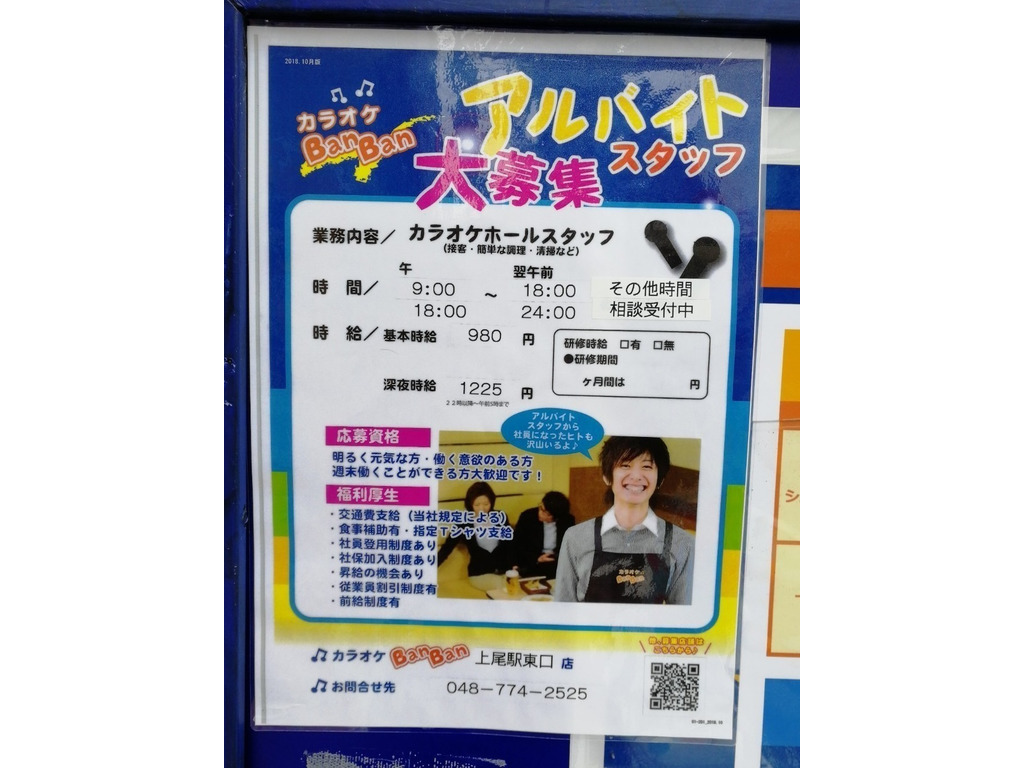 2018.10月版
カラオケ
BanBan
アルバイト
スタッフ
大募集
業務内容／ カラオケホールスタッフ
（接客・簡単な調理・清掃など）
午 翌午前
時 間／ 9:00 ～ 18:00 その他時間
18:00 24:00 相談受付中
時 給／基本時給 980 円
研修時給 □有 □無
●研修期間
ヶ月間は 円
深夜時給 1225 円
22時以降～午前5時まで
アルバイト
スタッフから
社員になったヒトも
沢山いるよ♪
応募資格
明るく元気な方・働く意欲のある方
週末働くことができる方大歓迎です！
福利厚生
・交通費支給（当社規定による）
・食事補助有・指定Tシャツ支給
・社員登用制度あり
・社保加入制度あり
・昇給の機会あり
・従業員割引制度有
・前給制度有
カラオケ
BanBan
カラオケ BanBan 上尾駅東口 店
お問合せ先 048-774-2525
こちらから♪